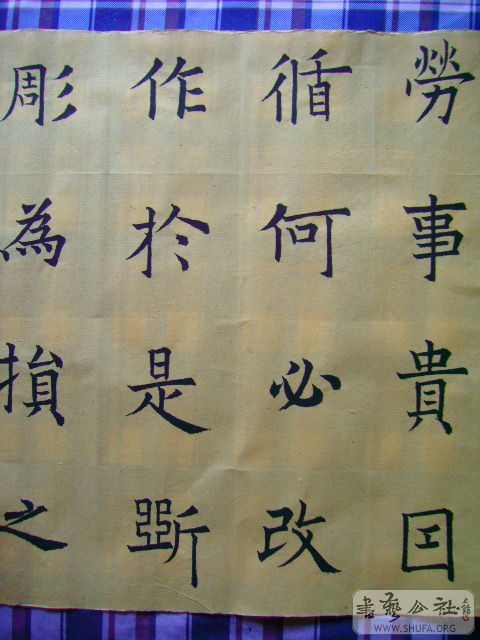 勞事貴因
循何必改
作於是斲
彫為損之
書藝公社
WWW.SHUFA.ORG